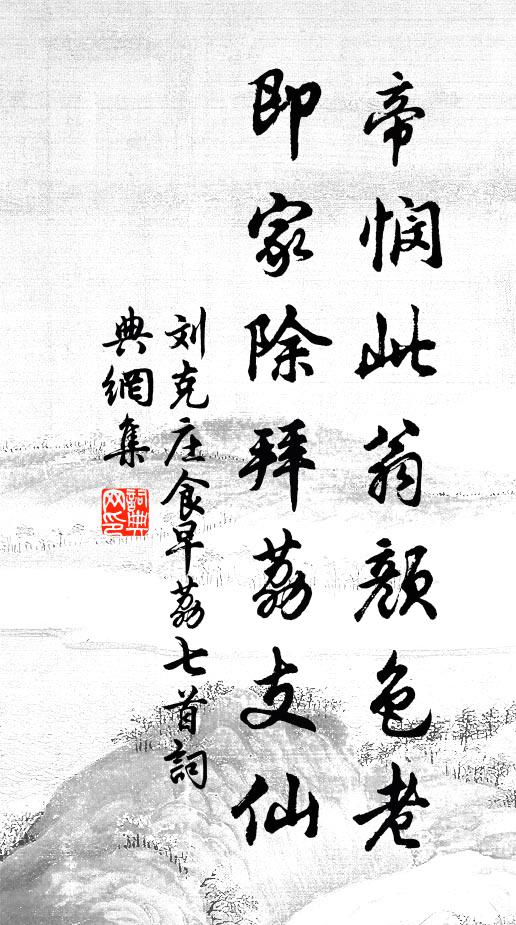 帝悯此翁颜色老
即家除拜荔支仙
刘克庄食早荔七首詞
典網集
詞典
网印